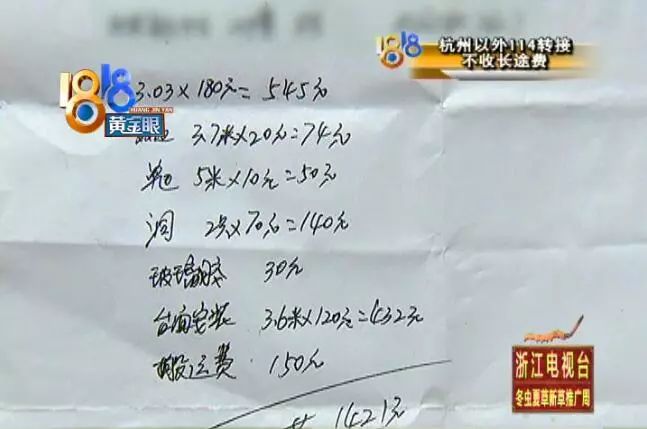 杭州以外114转接
不收长途费
1818
HUANG JIN YAN
黄金眼
3.03×180元=545元
3.7米×20元=74元
单包 5米×10元=50元
洞 2只×70元=140元
玻璃胶 30元
台面安装 3.6米×120元=432元
搬运费 150元
共 1421元
浙江电视台
冬虫夏草新草推广周